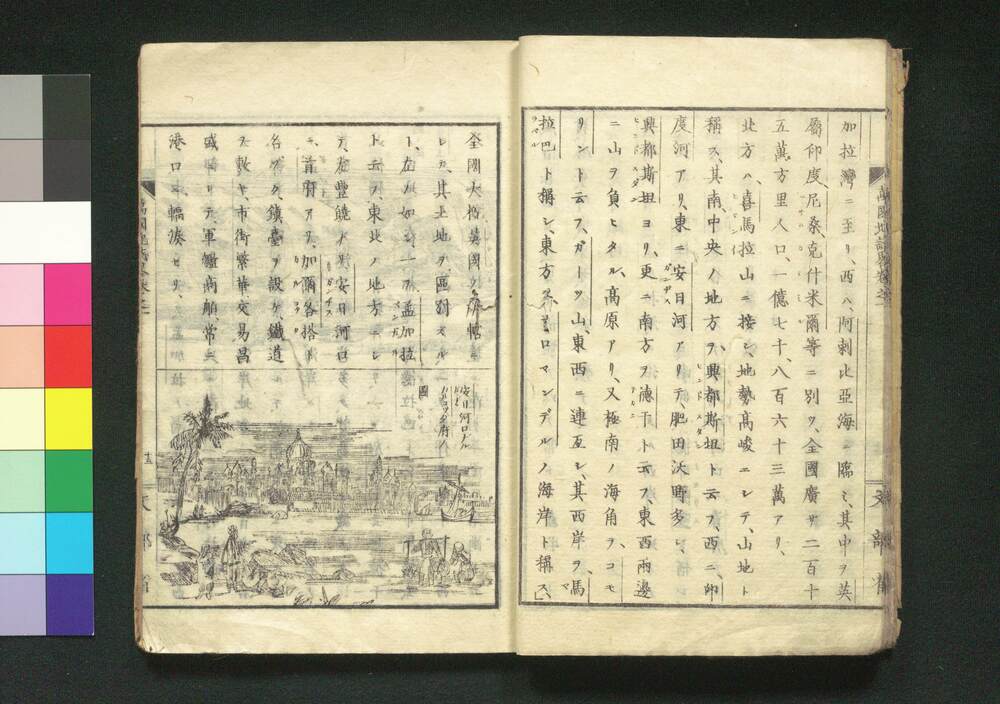 加拉灣ニ至リ、西ハ、阿剌比亞海ニ臨ミ、其中ヲ英
屬印度、尼桑克什米爾等ニ別ツ、全國廣サ二百十
五萬方里人口、一億七十八百六十三萬アリ、
北方ハ、喜馬拉山ニ接シ、地勢高峻ニシテ、山地ト
稱ス、其南、中央ノ地方ヲ、興都斯坦ト云フ、西ニ、印
度河アリ、東ニ安日河アリテ肥田沃野多シ、
興都斯坦ヨリ、更ニ南方ヲ德干ト云フ、東西兩邊
ニ山ヲ負ヒタル、高原アリ、又極南ノ海角ヲ、コモ
リント云フ、ガーツ山、東西ニ連亙シ、其西岸ヲ、馬
拉巴ト稱シ、東方ヲ、コロマンデルノ海岸ト稱ス、
全國大抵英國
レカ、其土地ヲ區別スル
ト、左ノ如シ、一ヲ孟加拉
ト云フ、東北ノ地方ニシ
テ、左豐饒ノ
安日河口
ニ、首府アリ、加爾各搭ト
名ツク、鎭臺ヲ設ケ、鐵道
ヲ敷キ、市街繁華、交易昌
盛ナリ、軍艦商舶常ニ
港口ニ、輻湊セリ、
安日河口ナル
カルコッタ府ノ
圖
萬國地誌略卷之二
文部省